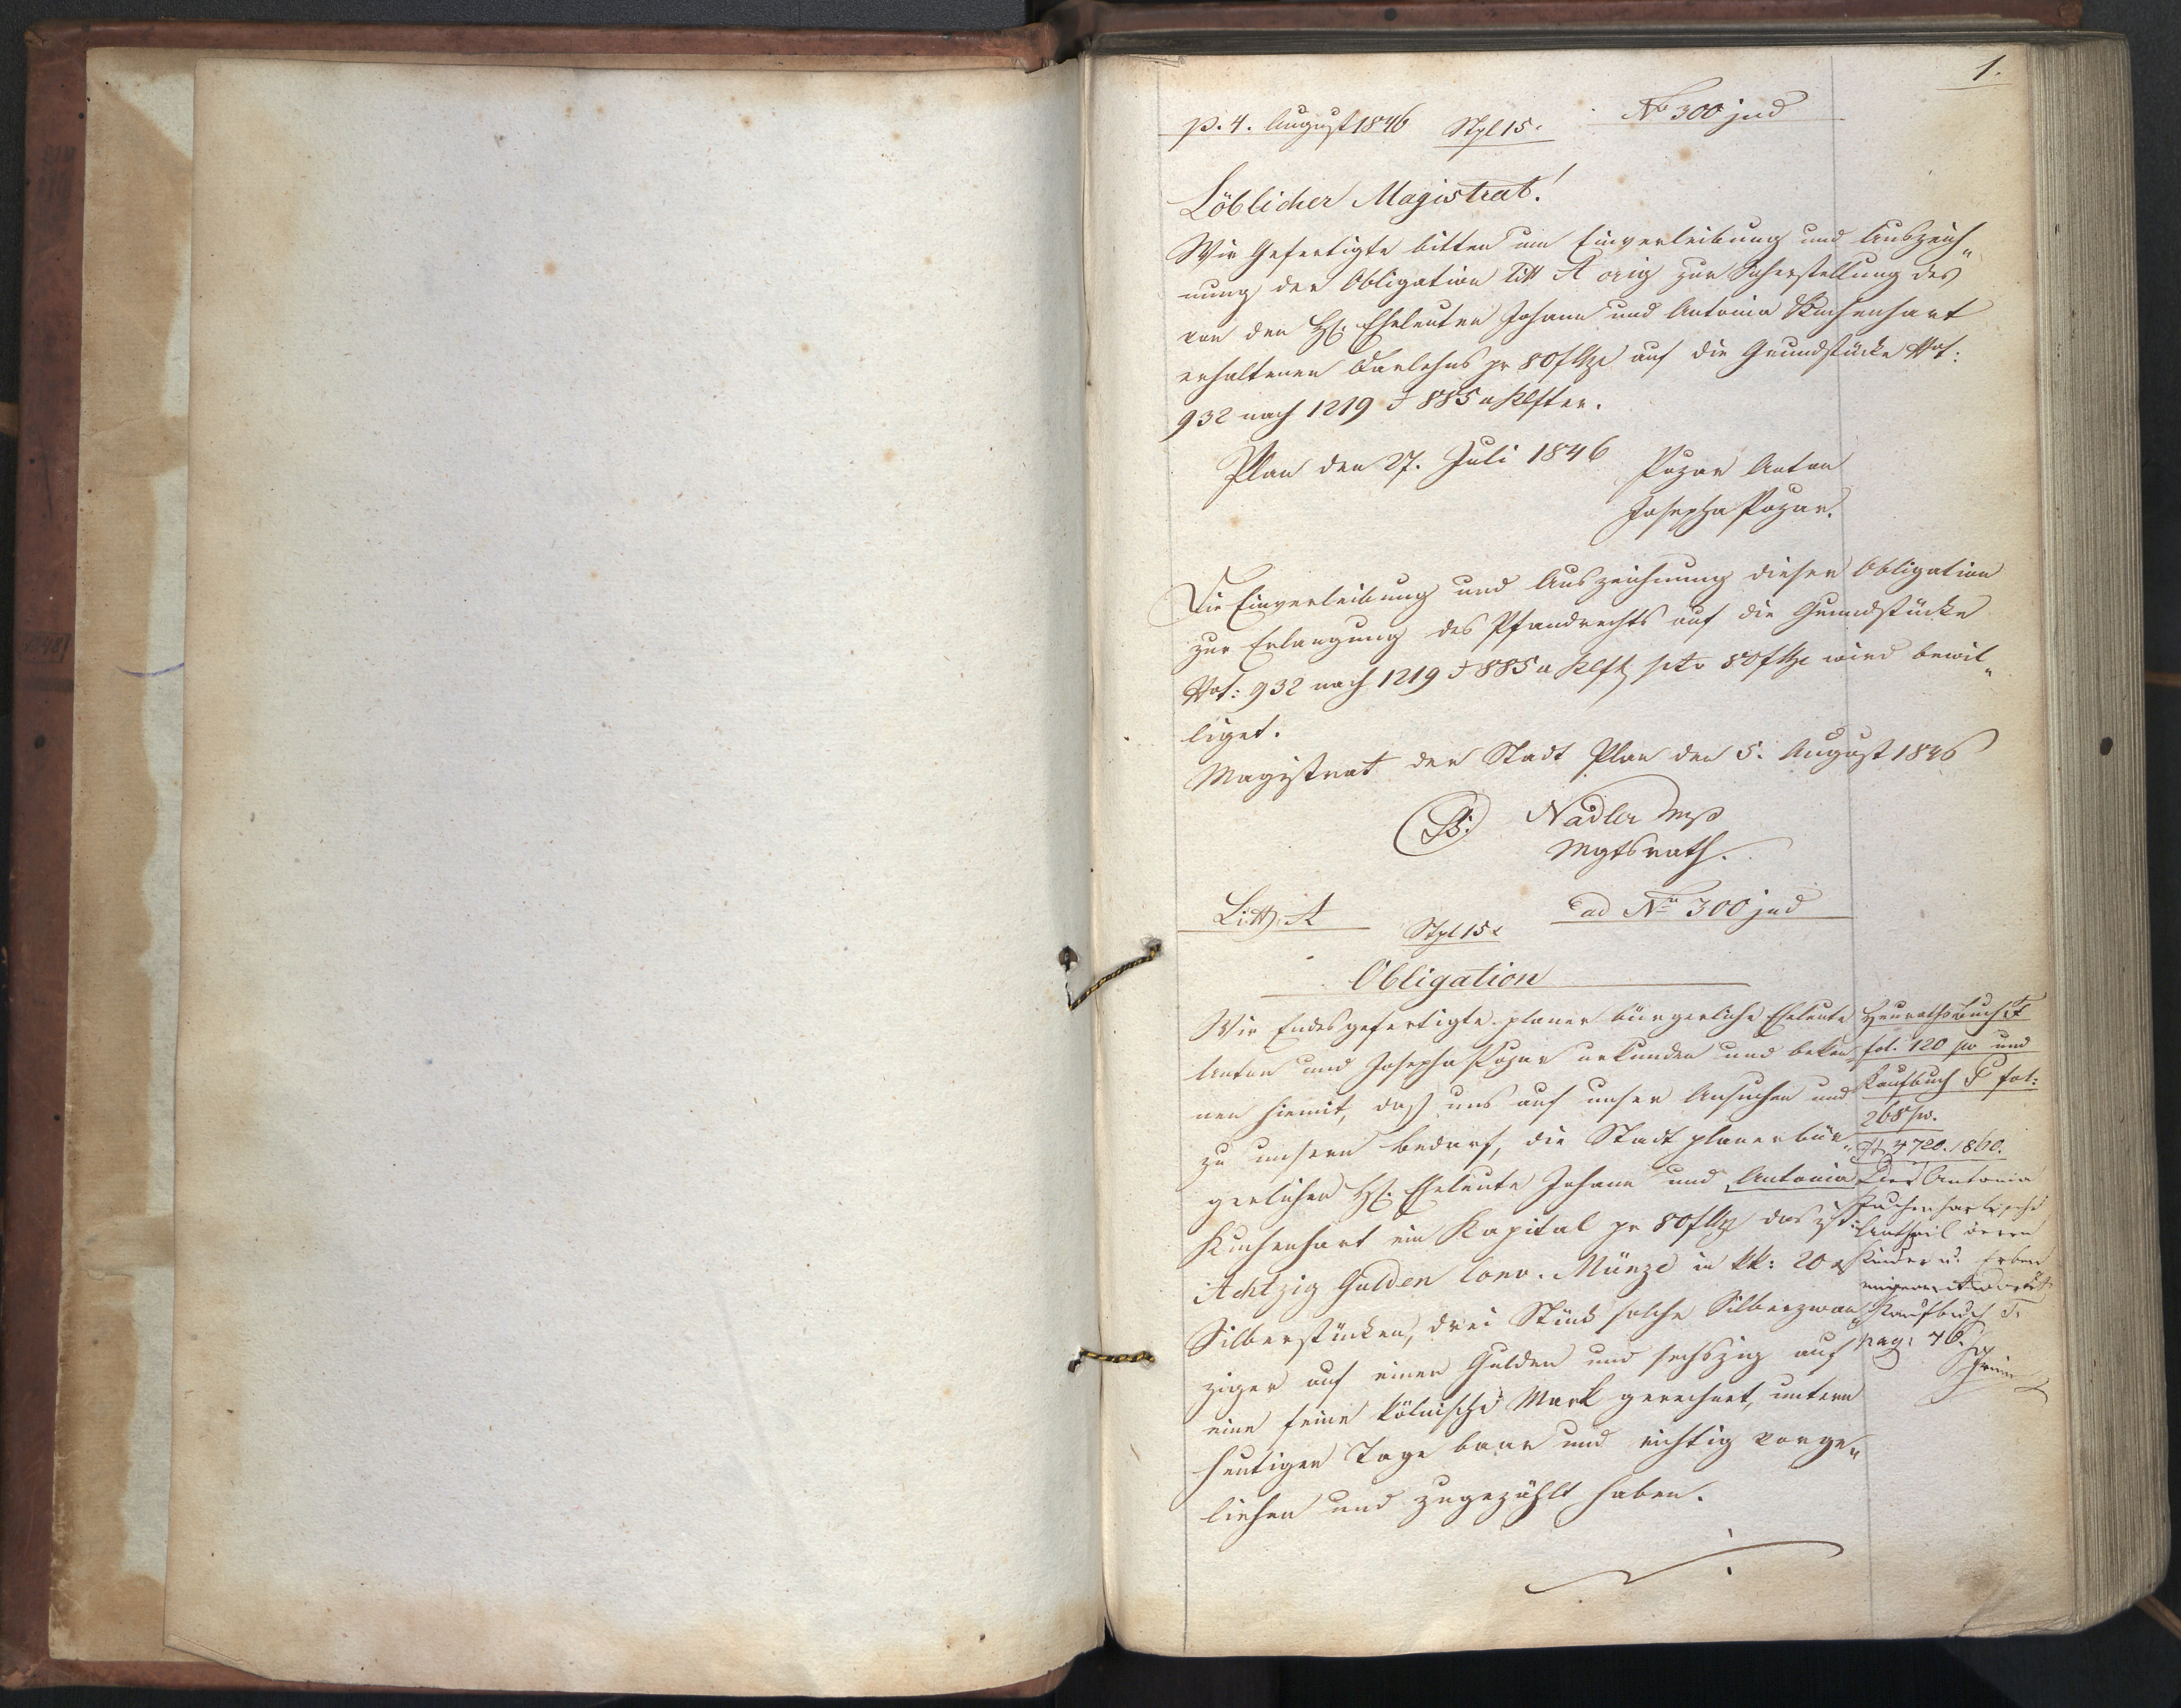 1.
p. 4. August 1846 Stpl 15. No 300 jud
Löblicher Magistrat!
Wir Gefertigte bitten um Einverleibung und Auszeich„
nung der Obligation Litt A orig zur Sicherstellung des
von den H. Eheleuten Johann und Antonia Kuchenhart
erhaltenen Darlehns pr 80 f auf die Grundstücke Nof:
932 nach 1219 & 885 a Klfter.
Plan den 27. Juli 1846 Pozar Anton
Josepha Pozar.
Die Einverleibung und Auszeichnung dieser Obligation
zur Erlangung des Pfandrechts auf die Grundstücke
Nof: 932 nach 1219 & 885 a Klft pto 80 f wird bewil„
liget.
Magistrat der Stadt Plan den 5. August 1846
Nadler mp
Mgtsrath.
Litt. A Stpl 15 x ad No 300 jud
Obligation
Wir Endesgefertigte planer bürgerliche Eheleute
Anton und Josepha Pozar urkunden und beken„
nen hiemit, daß uns auf unser Ansuchen und
zu unsern Bedarf, die Stadt planer bür„
gerlichen H. Eheleute Johann und Antonia
Kuchenhart ein Kapital pr 80 f das ist:
Achtzig Gulden Conv. Münze in kk: 20 x
Silberstücken, drei Stück solche Silberzwan„
ziger auf einen Gulden und sechszig auf
eine feine kölnische Mark gerechnet, unterm
heutigen Tage baar und richtig vorge„
liehen und zugezählt haben.
Heurathsbuch F
fol. 120 pv und
Kaufbuch F fol:
268 pv.
4720. 1860.
Antonia
Kuchenhartsche
Antheil deren
Kinder u. Erben
Kaufbuch T.
pag: 46.